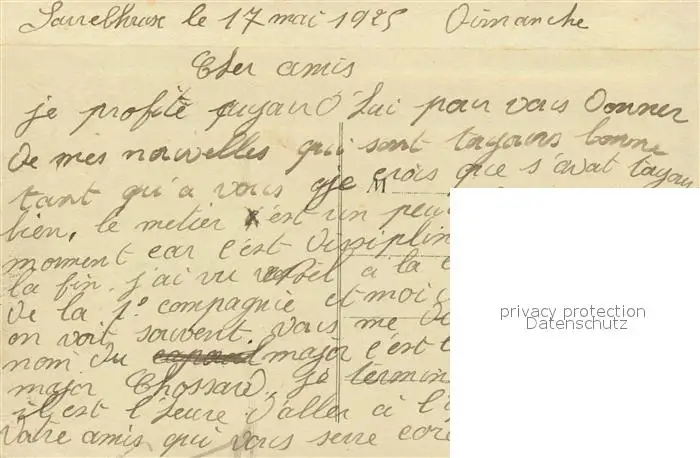 Sarrelbruck le 17 mai 1925 Dimanche
Cher amis
je profite aujourd'hui pour vous donner
de mes nouvelles qui sont toujours bonne
tant qu'a vous je crois que s'avat toujou
bien, le metier est un peu
moment car c'est disiplin
la fin. j'ai vu à la
de la 1º compagnie et moi
on voit souvent. Vous me de
nom du major c'est l
major Chossard, je termin
il est l'heure d'aller à l'
Votre amis qui vous serre cor
privacy protection
Datenschutz